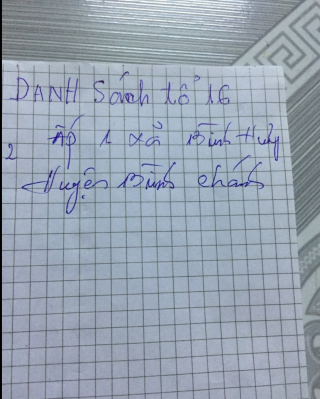 DANH Sách tổ 16
ẤP 1 xã Bình Hưng
2
Huyện Bình chánh